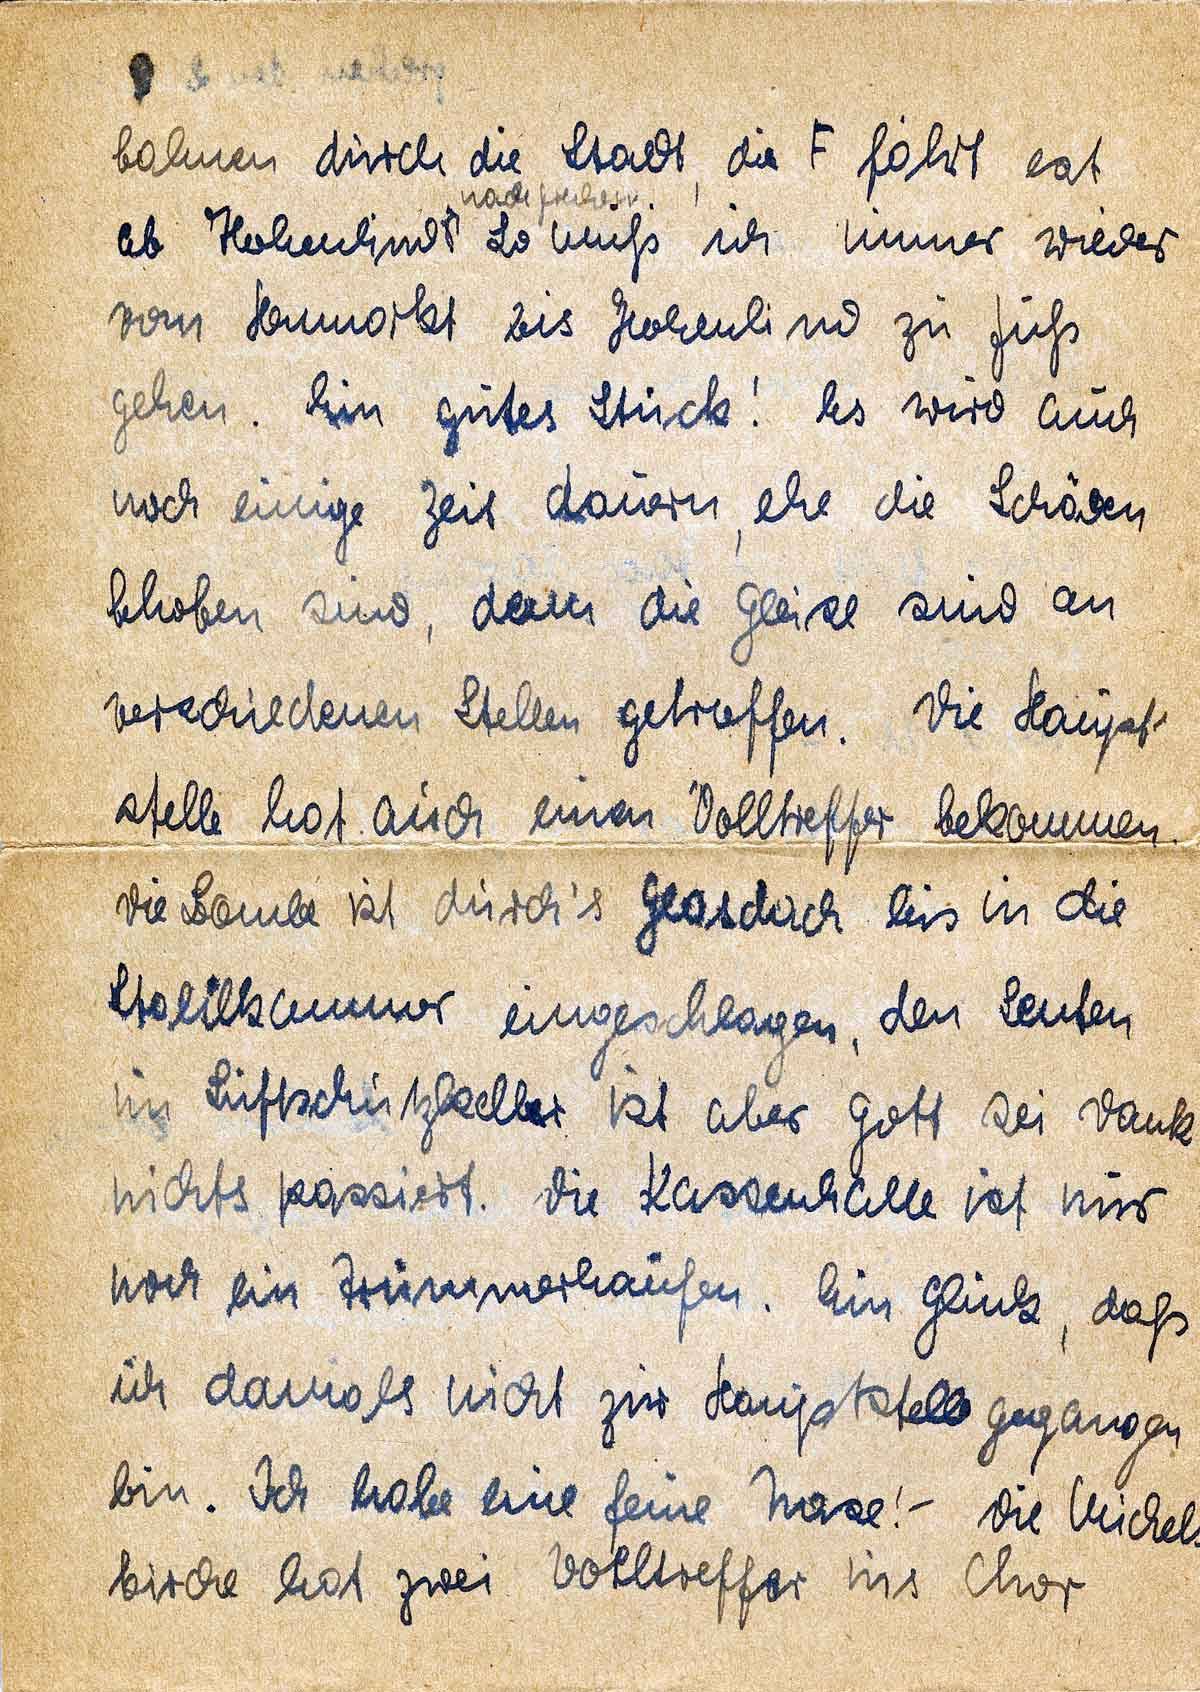 bahnen durch die Stadt, die F fährt est
nach frechen
ab Hohenlindt So muß ich immer wieder
vom Neumarkt bis Hohenlind zu Fuß
gehen. Ein gutes Stück! Es wird auch
noch einige Zeit dauern, ehe die Schäden
behoben sind, denn die Gleise sind an
verschiedenen Stellen getroffen. Die Haupt-
stelle hat auch einen Volltreffer bekommen.
Die Bombe ist durch's Glasdach bis in die
Stahlkammer eingeschlagen, den Leuten
im Luftschutzkeller ist aber Gott sei Dank
nichts passiert. Die Kassenhalle ist nur
noch ein Trümmerhaufen. Ein Glück, daß
ich damals nicht zur Hauptstelle gegangen
bin. Ich habe eine feine Nase! – Die Michels
kirche hat zwei Volltreffer ins Chor